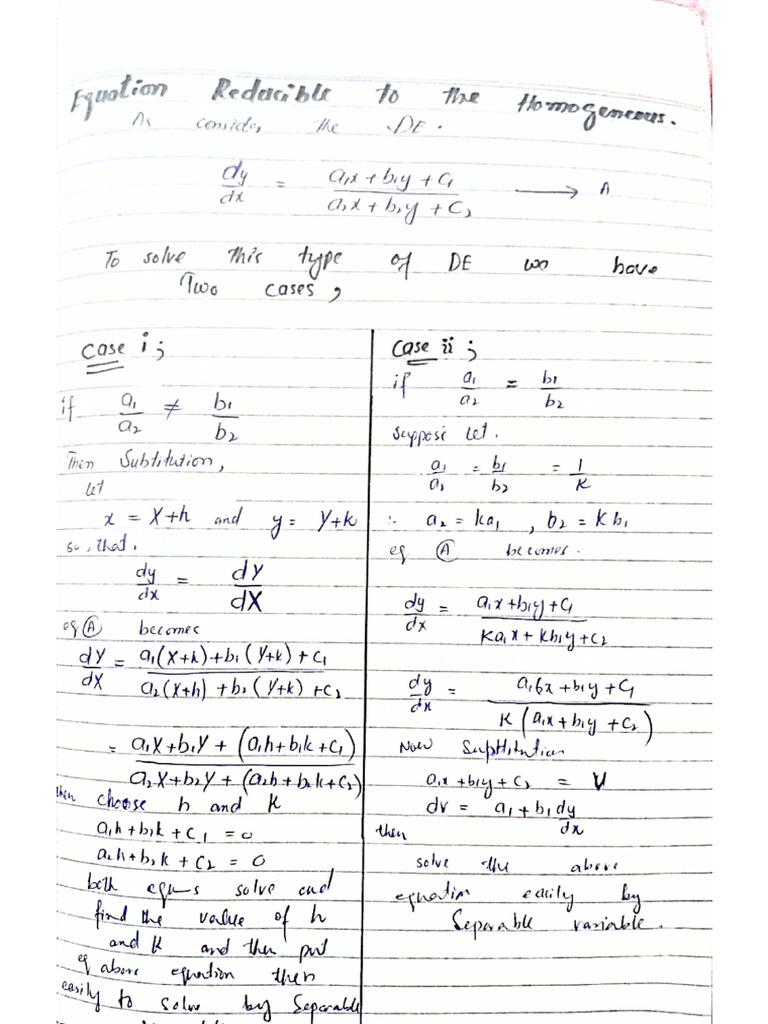 Equation Reducible to the Homogeneous.
As consider the DE.
dy/dx = a1x + b1y + c1 / a2x + b2y + c2 → A
To solve this type of DE we have
Two cases,
Case i;
if a1/a2 ≠ b1/b2
Then Subtitution,
let
x = X+h and y = Y+k
so, that,
dy/dx = dY/dX
eq Ⓐ becomes
dY/dX = a1(X+h)+b1(Y+k)+c1 / a2(X+h)+b2(Y+k)+c2
= a1X+b1Y+(a1h+b1k+c1) / a2X+b2Y+(a2h+b2k+c2)
then choose h and k
a1h+b1k+c1=0
a2h+b2k+c2=0
both equs solve and
find the value of h
and k and then put
eq above equation then
easily to solve by Separable
Case ii;
if a1/a2 = b1/b2
Suppose let.
a1/a1 = b1/b2 = 1/K
∴ a2 = ka1, b2 = Kb1
eq Ⓐ becomes.
dy/dx = a1x+b1y+c1 / Ka1x+Kb1y+c2
dy/dx = a1x+b1y+c1 / K(a1x+b1y+c2)
Now Suptitution
a1x+b1y+c2 = V
dv = a1+b1dy/dx
then
solve the above
equation easily by
Separable variable.